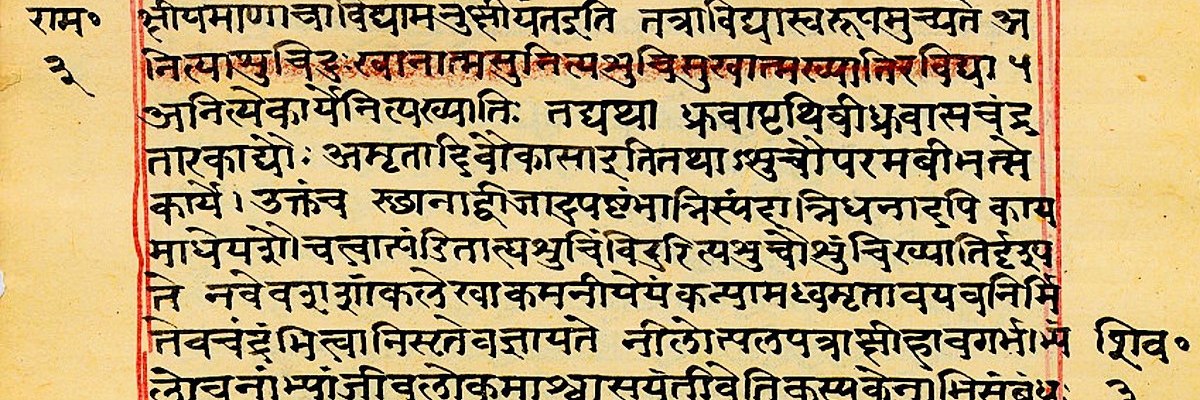 राम॰ क्षीयमाणाचाविद्यामनुक्षीयंतइति तत्राविद्यास्वरूपमुच्यते अ
३ नित्याशुचिदुःखानात्मसुनित्यशुचिसुखात्मख्यातिरविद्या ५
अनित्येकार्येनित्यख्यातिः तद्यथा ध्रुवापृथिवीध्रुवासचंद्र
तारकाद्यौः अमृतादिवौकासाइतितथाऽशुचौपरमबीभत्से
काये। उक्तंच स्छानाद्बीजादुपष्टंभान्निस्पंदान्निधनादपि काय
माधेयशौचत्वात्पंडिताह्यशुचिंविदुरित्यशुचौशुचिख्यातिर्दृश्य
ते नवेवशशांकलेखाकमनीयेयंकन्यामध्वमृतावयवनिर्मि
तेवचंद्रंभित्वानिसृतेवज्ञायते नीलोत्पलपत्राक्षीहावगर्भाभ्यां शिव॰
लोचनाभ्यांजीवलोकमाश्वासयंतीवेतिकस्यकेनाभिसंबंधः ३